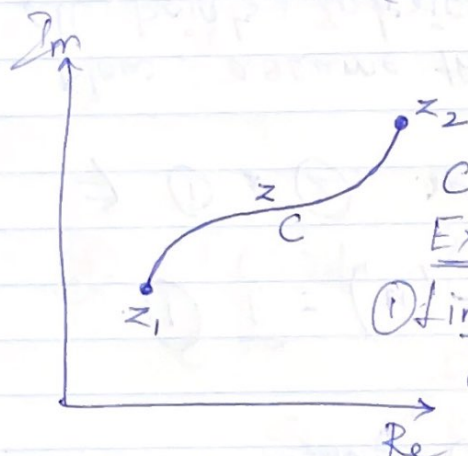 Im
z₂
C
z
C
Ex
z₁
①Lin
Re